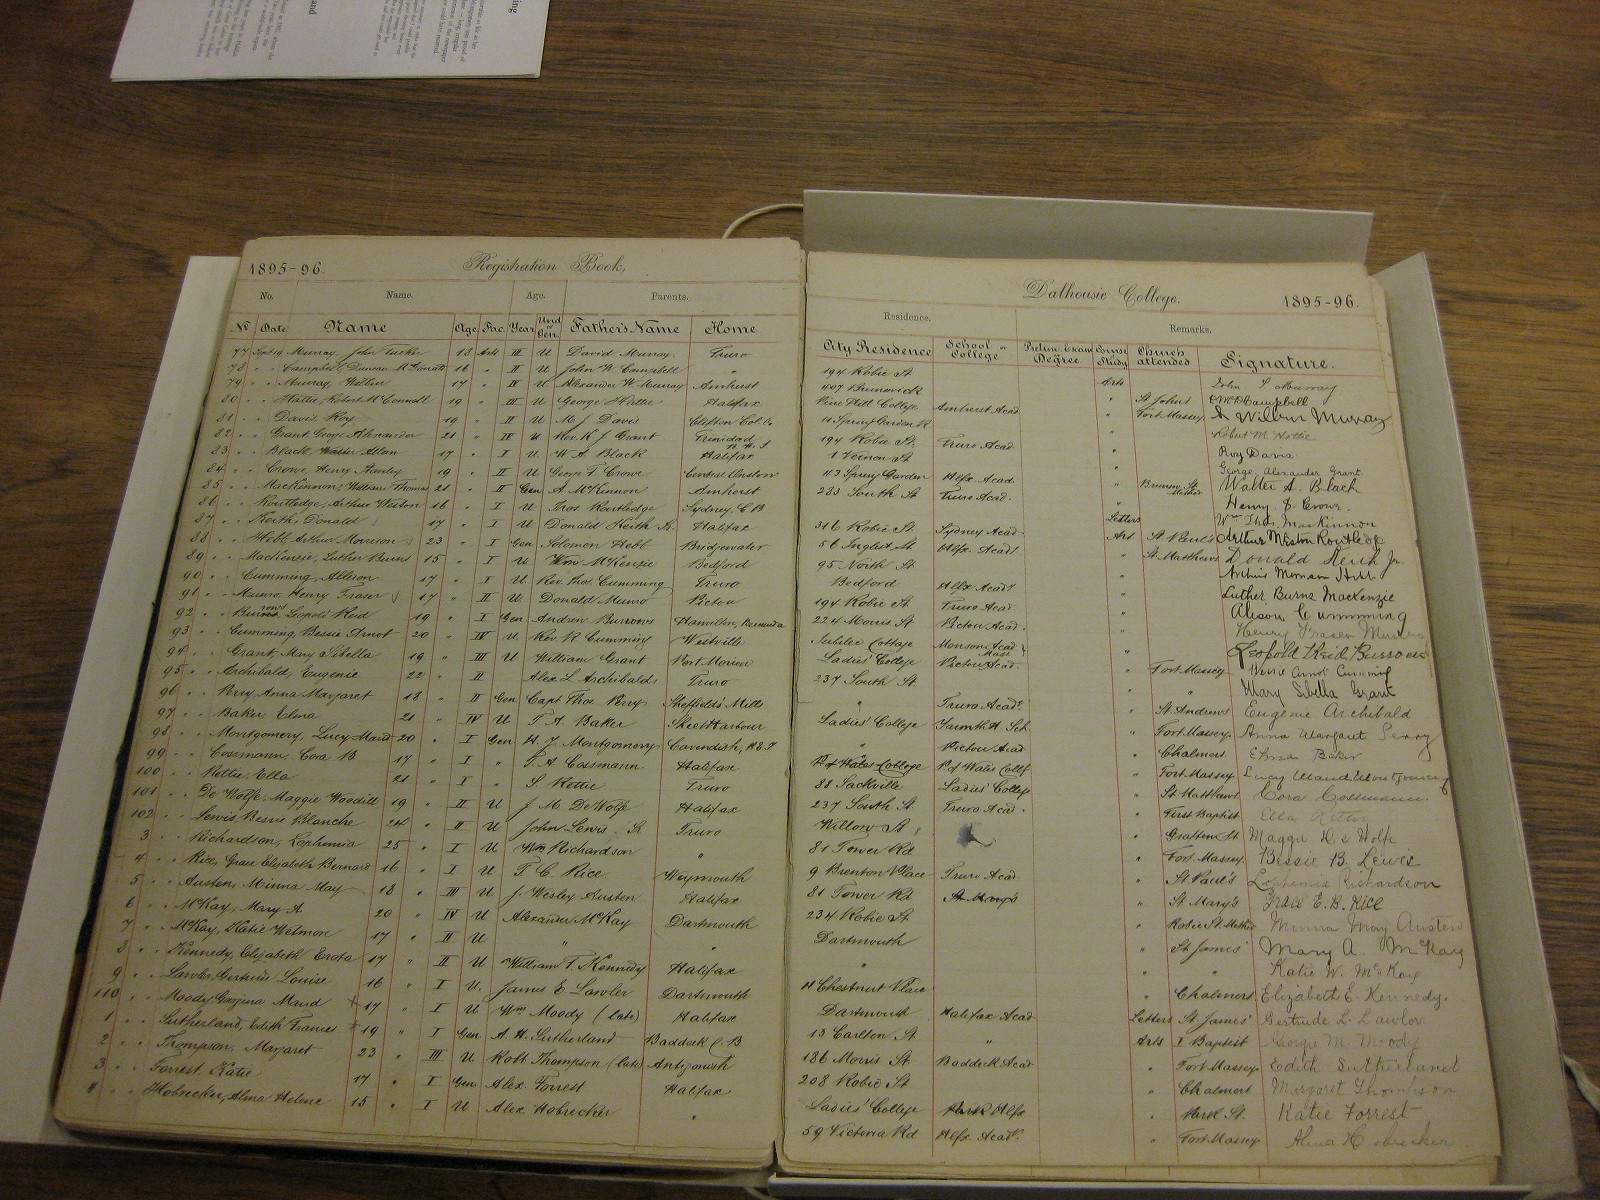 1895-96. Registration Book.
No. Name. Age. Parents.
No Date Name Age. Fac. Year Und or Gen. Father's Name Home
77 Murray, John Tucker 18 Arts III U David Murray. Truro
78 " " Campbell, Duncan McDonald 16 " II U John W. Campbell "
79 " " Murray, Wilbur 17 " IV U Alexander W Murray Amherst
80 " " Hattie, Robert McConnell 19 " III U George Hattie Halifax
81 " " Davis Roy 19 " II U M J Davis Clifton Col. Co
82 " " Grant George Alexander 21 " IV U Rev. K J Grant Trinidad
83 " " Black, Walter Allan 17 " I U W A Black Halifax
84 " " Crowe, Henry Stanley 19 " II U George F Crowe Central Onslow
85 " " MacKinnon, William Thomas 21 " II Gen A McKinnon Amherst
86 " " Routledge, Arthur Weston 16 " I U Thos Routledge Sydney, C B
87 " " Keith, Donald 17 " I U Donald Keith Sr. Halifax
88 " " Hebb, Arthur Morrison 23 " I Gen Solomon Hebb Bridgewater
89 " " MacKenzie, Luther Burns 15 " I U Wm McKenzie Bedford
90 " " Cumming, Allison 17 " I U Rev. Thos. Cumming Truro
91 " " Munro, Henry Fraser 17 " II U Donald Munro Pictou
92 " " Leopold Reid 19 " I Gen. Andrew Burrows Hamilton, Bermuda
93 " " Cumming, Bessie Arnot 20 " IV U Rev R Cumming Westville
94 " " Grant, Mary Sibella 19 " III U William Grant Port Morien
95 " " Archibald, Eugenie 22 " II Alex L Archibald Truro
96 " " Perry Anna Margaret 18 " II Gen Capt Thos Perry Sheffields Mills
97 " " Baker, Edna 21 " IV U T. A. Baker Harbour
98 " " Montgomery, Lucy Maud 20 " I Gen H. J. Montgomery Cavendish, P.E.I
99 " " Cossmann, Cora B 17 " I " J. A. Cossmann Halifax
100 " " Rettie, Ella 21 " I " S. Rettie Truro
101 " " De Wolfe, Maggie Woodill 19 " II U J M DeWolfe Halifax
102 " " Lewis Bessie Blanche 24 " II U John Lewis Sr. Truro
3 " " Richardson, Lophemia 25 " I U Wm Richardson "
4 " " Rice, Grace Elizabeth Bernard 16 " I U T. C. Rice. Weymouth
5 " " Austen, Minna May 18 " III U J. Wesley Austen Halifax
6 " " McKay, Mary A. 20 " IV U Alexander McKay Dartmouth
7 " " McKay, Katie Wetmore 17 " II U " "
8 " " Kennedy, Elizabeth 17 " II U William T. Kennedy Halifax
9 " " Lawlor, Gertrude Louise 16 " I U. James E Lawlor Dartmouth
110 " " Moody Georgina Maud 17 " I U Wm Moody (late) Halifax
1 " " Sutherland, Edith Frances 19 " I Gen A. H. Sutherland Baddeck C. B
2 " " Thompson, Margaret 23 " III U Robt. Thompson (late) Antigonish
3 " " Forrest, Katie 17 " I Gen Alex Forrest Halifax
4 " " Hobrecker, Alma Helene 15 " I U Alex Hobrecker "
Dalhousie College. 1895-96.
Residence. Remarks.
City Residence School or College Prelim. Exam Degree Course Study Church attended Signature.
194 Robie St. Arts John T Murray
407 Brunswick " St Johns D McD Campbell
Pine Hill College Amherst Acad " Fort Massey Wilbur Murray
11 Spring Garden R " Robert M. Hattie
194 Robie St. Truro Acad. " Roy Davis
1 Vernon St " George Alexander Grant
43 Spring Garden Hlfx Acad. " Brunsw. St. Walter A. Black
283 South St Truro Acad. " Henry S. Crowe
Letters Wm Thos. MacKinnon
316 Robie St. Sydney Acad Arts St Paul's Arthur Weston Routledge
56 Inglis St. Hlfx Acad. " St. Matthews Donald Keith Jr.
95 North St " Arthur Morrison Hebb
Bedford Hlfx Acad. " Luther Burns MacKenzie
194 Robie St. Truro Acad " Alison Cumming
224 Morris St Pictou Acad. " Henry Fraser Munro
Jubilee Cottage Monson Acad Mass " Leopold Reid Burrows
Ladies' College Pictou Acad. " Fort Massey Arnot Cumming
237 South St. " " Mary Sibella Grant
" Truro Acad. " St. Andrews Eugenie Archibald
Ladies' College Yarmth H. Sch " Fort Massey Anna Margaret Perry
" Pictou Acad " Chalmers Edna Baker
P of Wales College " Fort Massey Lucy Maud Montgomery
88 Sackville Ladies' Colleg " St. Matthews Cora Cossmann.
237 South St. Truro Acad. " First Baptist Ella Rettie
Willow St " Grafton St Maggie De Wolfe
81 Tower Rd " Fort Massey. Bessie B. Lewis
9 Brenton Place Truro Acad " St. Paul's Lophemia Richardson
81 Tower Rd St Mary's " St. Mary's Grace E. B. Rice
234 Robie St " Robie St. Meth Minna May Austen
Dartmouth " St James' Mary A. McKay
" " " Katie W. McKay
11 Chestnut Place " Chalmers Elizabeth E. Kennedy.
Dartmouth Halifax Acad Letters St. James' Gertrude L. Lawlor
13 Carlton St " Arts I Baptist George M. Moody
186 Morris St. Baddeck Acad " Fort Massey Edith Sutherland
208 Robie St " Chalmers Margaret Thompson
Ladies' College Hlfx " Park St. Katie Forrest
59 Victoria Rd Hlfx Acad. " Fort Massey Alma Hobrecker